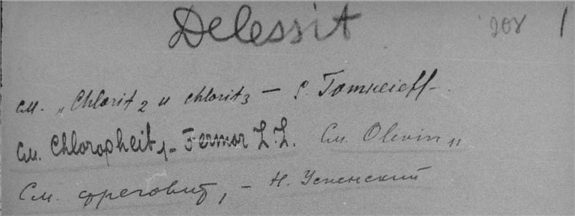 Delessit 208 1
см. „Chlorit 2 и chlorit 3 — С. Tomkeieff.
См. Chloropheit 1 — Fermor L.L. См. Olivin 11
См. ореговит, — Н. Успенский